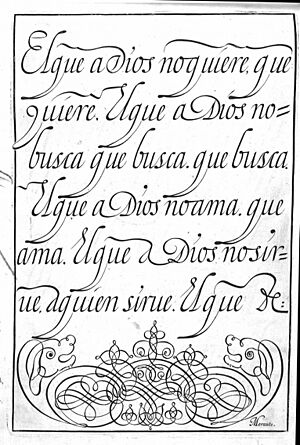 El que a Dios no quiere, que
quiere. Y que a Dios no=
busca que busca. que busca.
Y que a Dios no ama. que
ama. Y que a Dios no sir=
ve, a quien sirve. Y que &:
Morante.